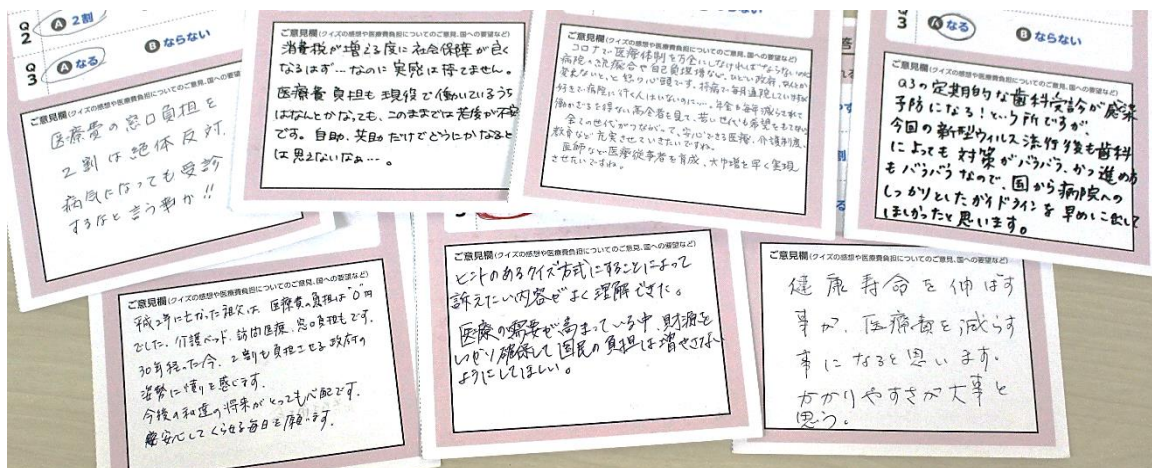 Q2
A 2割
Q3
A なる
B ならない
ご意見欄(クイズの感想や医療費負担についてのご意見、国への要望など)
医療費の窓口負担を
2割は絶体反対.
病気になっても受診
するなと言う事か!!
ご意見欄(クイズの感想や医療費負担についてのご意見、国への要望など)
消費税が増える度に社会保障が良く
なるはず…なのに実感は持てません。
医療費負担も現役で働いているうち
はなんとかなっても、このままでは老後が不安
です。自助、共助だけでどうにかなると
は思えないなぁ…。
ご意見欄(クイズの感想や医療費負担についてのご意見、国への要望など)
コロナで医療体制を万全にしなければならないのに
病院の統廃合や自己負担増など、ひどい政府、なんとか
変えないと、と怒り心頭です。持病で毎月通院していますが
好きで病院に行く人はいないのに…。年金も毎年減らされて
働かざるを得ない高令者を見て、若い世代も希望をもてない
全ての世代がつながって、安心できる医療、介護制度、
教育など充実させていきたいですね。
医師など医療従事者を育成、大巾増を早く実現
させたいですね。
Q3
A なる
B ならない
ご意見欄(クイズの感想や医療費負担についてのご意見、国への要望など)
Q3の定期的な歯科受診が感染
予防になる!という所ですが、
今回の新型ウィルス流行後も歯科
によっても対策がバラバラ、かつ進め方
もバラバラなので、国から病院への
しっかりとしたガイドラインを早めに出して
ほしかったと思います。
ご意見欄(クイズの感想や医療費負担についてのご意見、国への要望など)
平成2年に亡かった祖父は、医療費の負担は"0"円
でした。介護ベッド、訪問医療、窓の負担もです。
30年経った今、2割も負担させる政府の
姿勢に憤りを感じます。
今後の私達の将来がとっても心配です。
安心してくらせる毎日を願います。
ご意見欄(クイズの感想や医療費負担についてのご意見、国への要望など)
ヒントのあるクイズ方式にすることによって
訴えたい内容がよく理解できた。
医療の需要が高まっている中、財源を
しっかり確保して国民の負担は増やさない
ようにしてほしい。
ご意見欄(クイズの感想や医療費負担についてのご意見、国への要望など)
健康寿命を伸ばす
事が、医療費を減らす
事になると思います。
かかりやすさが大事と
思う。